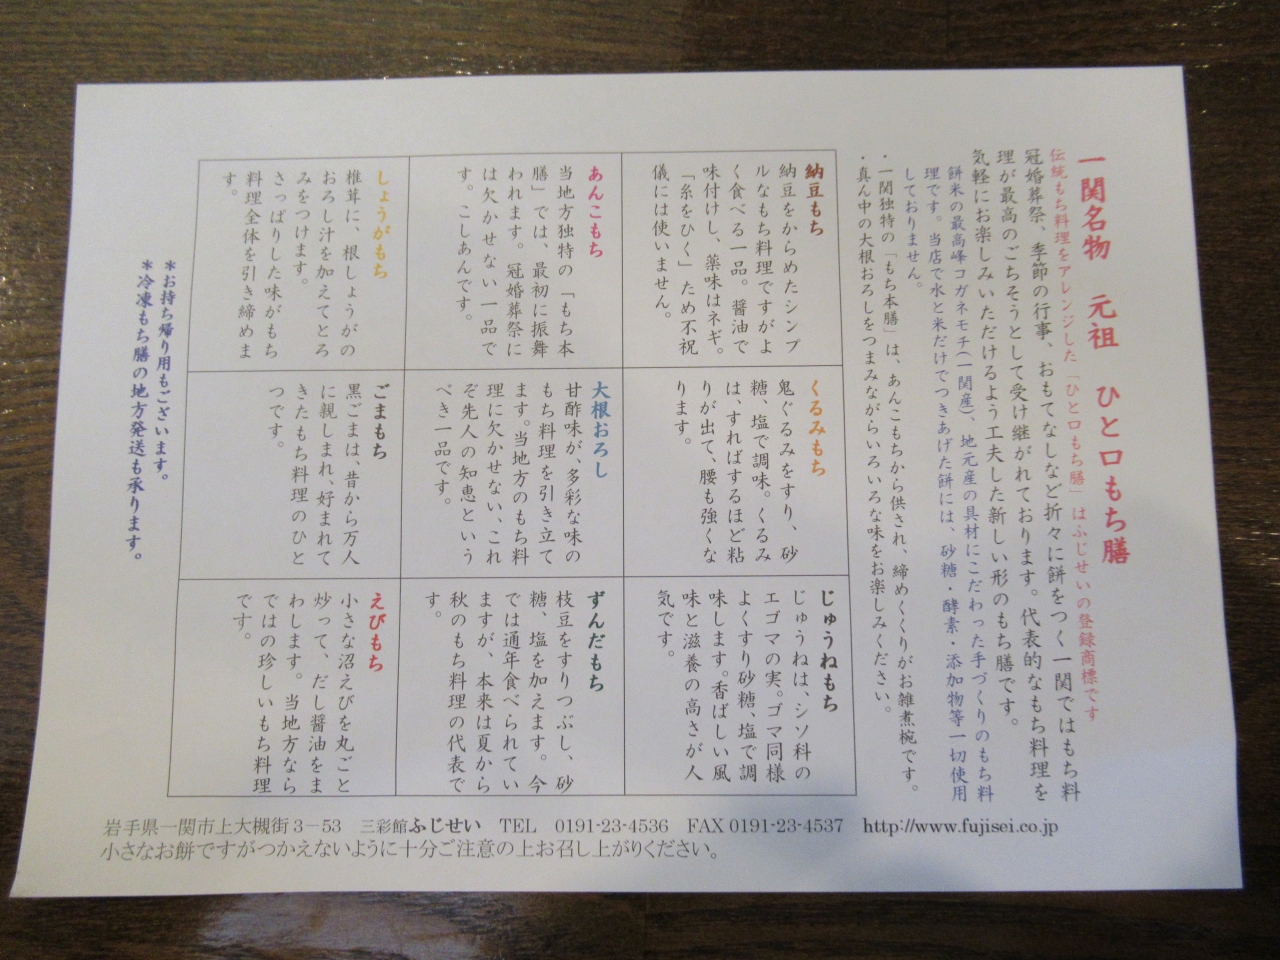 一関名物　元祖　ひと口もち膳
伝統もち料理をアレンジした「ひと口もち膳」はふじせいの登録商標です
冠婚葬祭、季節の行事、おもてなしなど折々に餅をつく一関ではもち料
理が最高のごちそうとして受け継がれております。代表的なもち料理を
気軽にお楽しみいただけるよう工夫した新しい形のもち膳です。
餅米の最高峰コガネモチ(一関産)、地元産の具材にこだわった手づくりのもち料
理です。当店で水と米だけでつきあげた餅には、砂糖・酵素・添加物等一切使用
しておりません。
・一関独特の「もち本膳」は、あんこもちから供され、締めくくりがお雑煮椀です。
・真ん中の大根おろしをつまみながらいろいろな味をお楽しみください。
納豆もち
納豆をからめたシンプ
ルなもち料理ですがよ
く食べる一品。醤油で
味付けし、薬味はネギ。
「糸をひく」ため不祝
儀には使いません。
あんこもち
当地方独特の「もち本
膳」では、最初に振舞
われます。冠婚葬祭に
は欠かせない一品で
す。こしあんです。
しょうがもち
椎茸に、根しょうがの
おろし汁を加えてとろ
みをつけます。
さっぱりした味がもち
料理全体を引き締めま
す。
くるみもち
鬼ぐるみをすり、砂
糖、塩で調味。くるみ
は、すればするほど粘
りが出て、腰も強くな
ります。
大根おろし
甘酢味が、多彩な味の
もち料理を引き立て
ます。当地方のもち料
理に欠かせない、これ
ぞ先人の知恵という
べき一品です。
ごまもち
黒ごまは、昔から万人
に親しまれ、好まれて
きたもち料理のひと
つです。
じゅうねもち
じゅうねは、シソ科の
エゴマの実。ゴマ同様
よくすり砂糖、塩で調
味します。香ばしい風
味と滋養の高さが人
気です。
ずんだもち
枝豆をすりつぶし、砂
糖、塩を加えます。今
では通年食べられてい
ますが、本来は夏から
秋のもち料理の代表で
す。
えびもち
小さな沼えびを丸ごと
炒って、だし醤油をま
わします。当地方なら
ではの珍しいもち料理
です。
＊お持ち帰り用もございます。
＊冷凍もち膳の地方発送も承ります。
岩手県一関市上大槻街3－53　三彩館ふじせい　TEL　0191-23-4536　FAX 0191-23-4537　http://www.fujisei.co.jp
小さなお餅ですがつかえないように十分ご注意の上お召し上がりください。